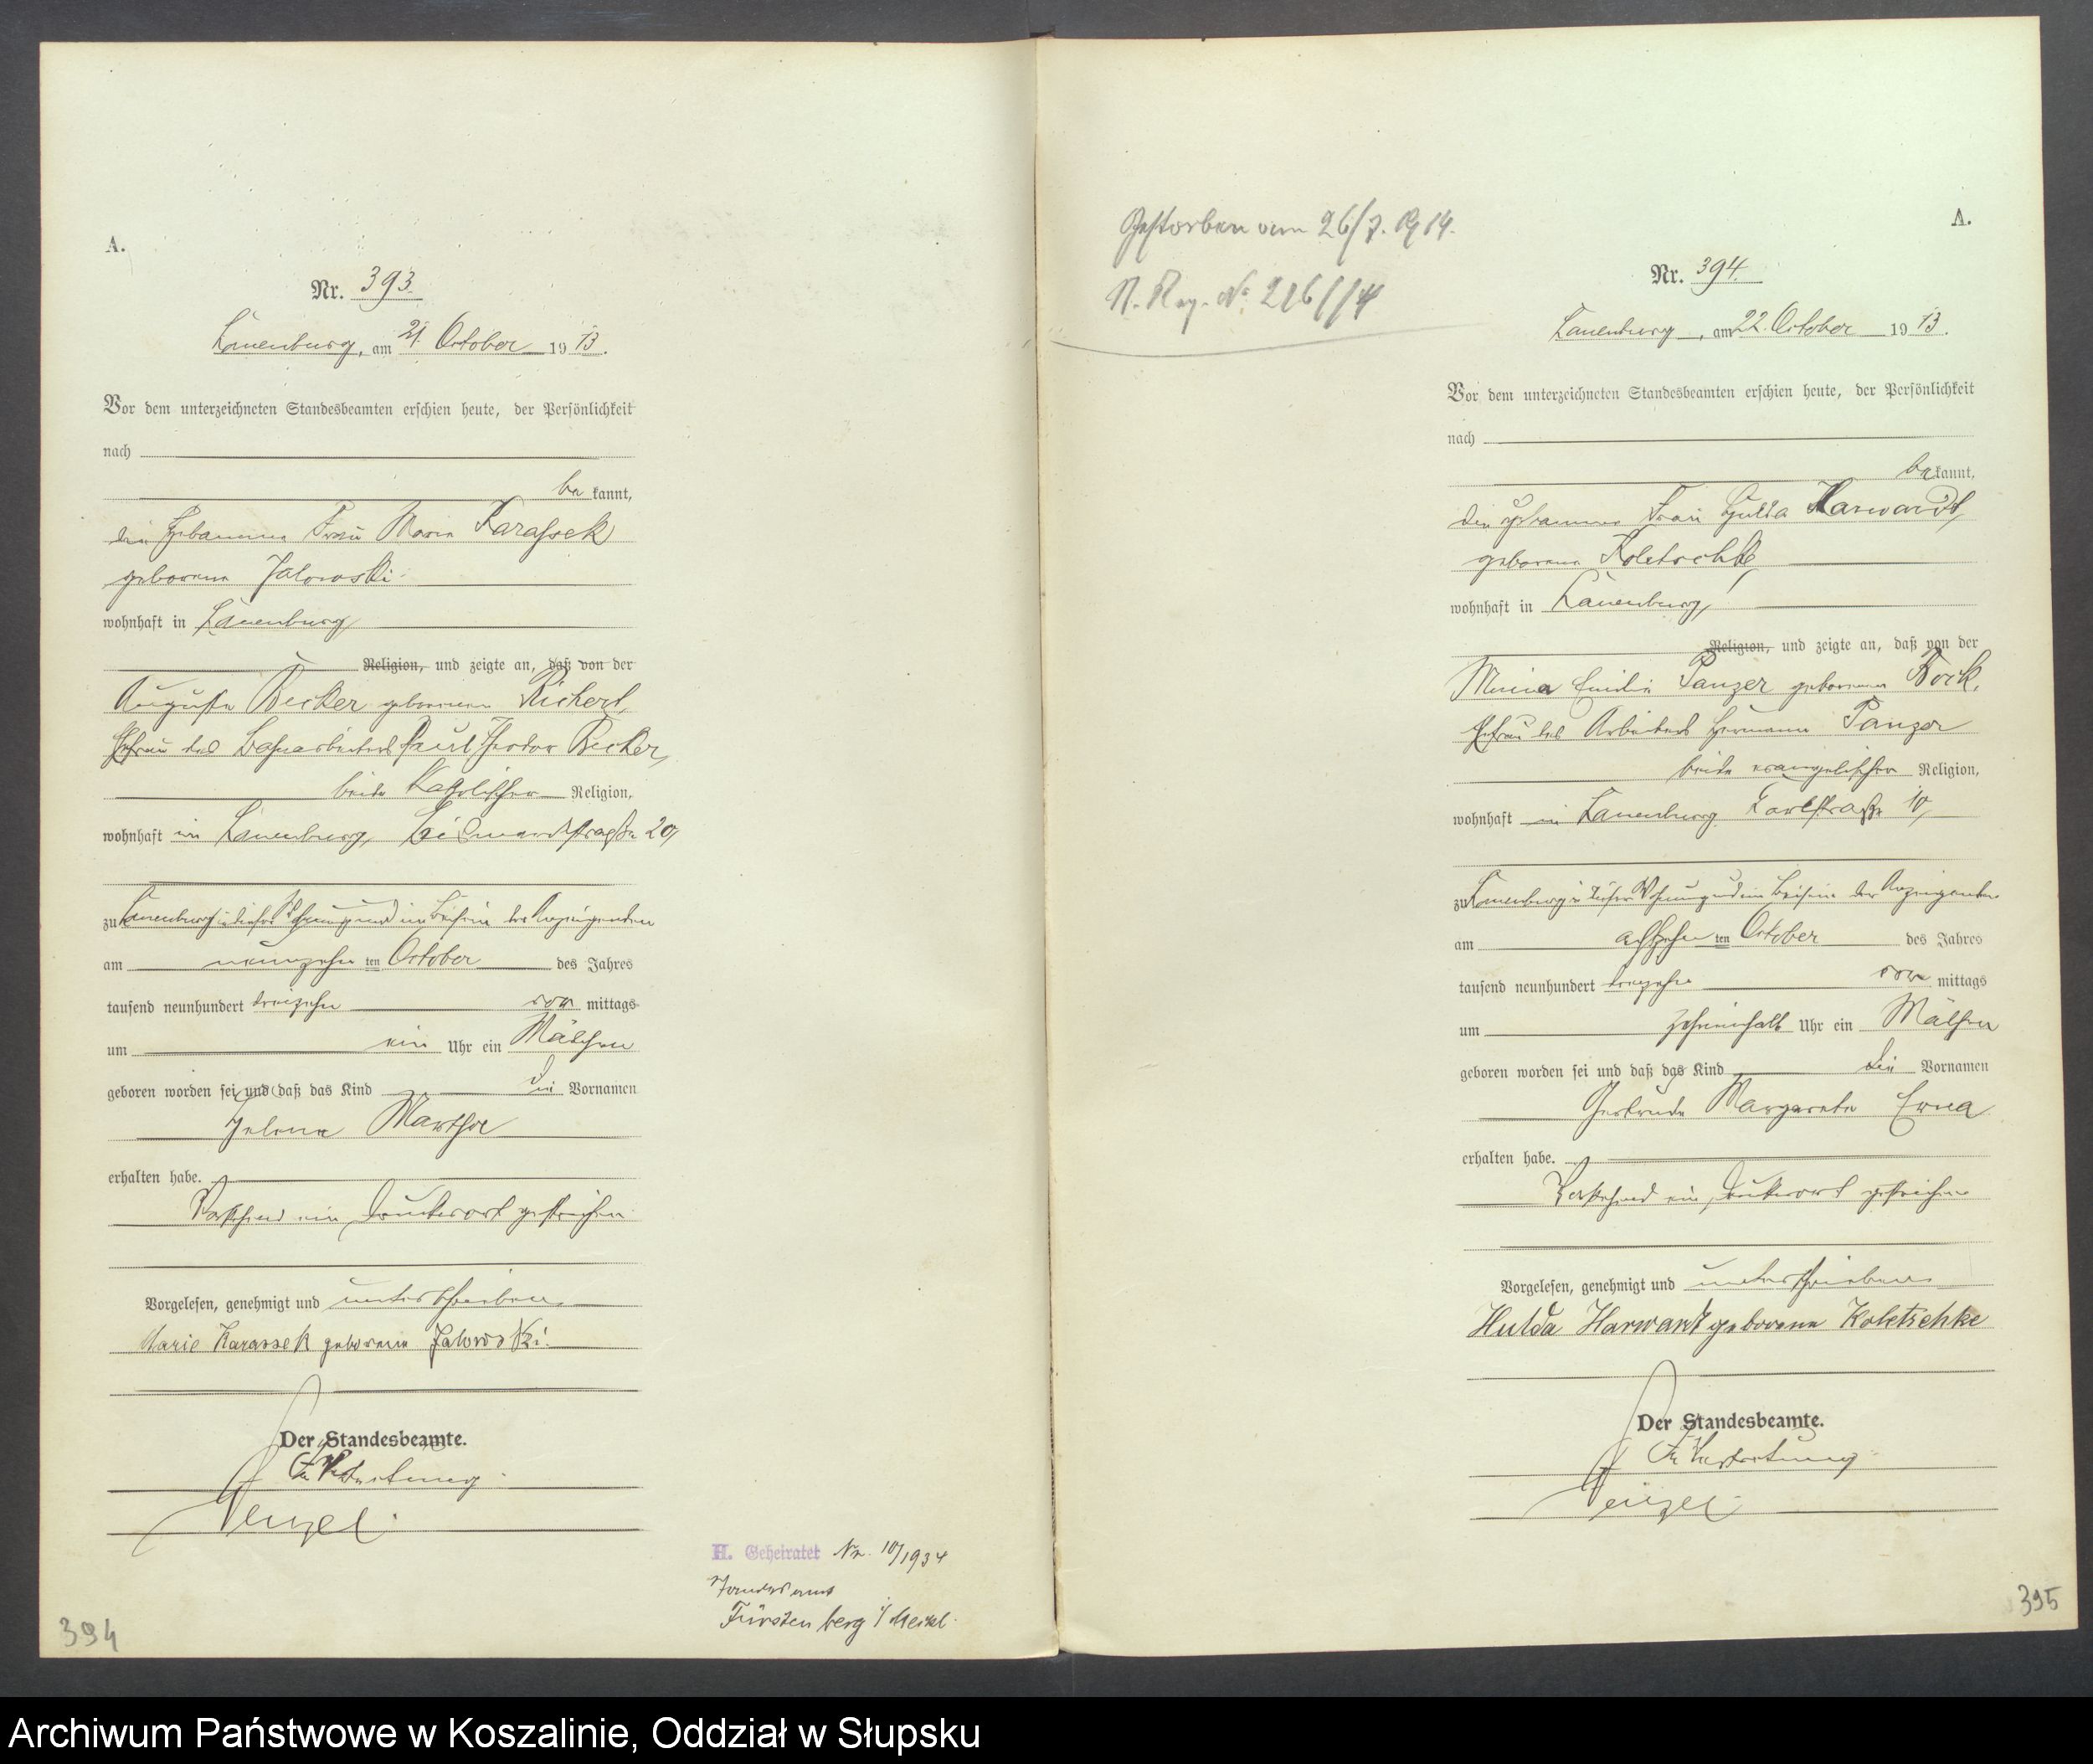 A.
Nr. 393.
Lauenburg, am 21. October 1913.
Vor dem unterzeichneten Standesbeamten erschien heute, der Persönlichkeit
nach
be kannt,
die Hebamme Frau Marie Karassek
geborene Jalowski
wohnhaft in Lauenburg
Religion, und zeigte an, daß von der
Auguste Becker geborenen Richert,
Ehefrau des Bahnarbeiters Paul Theodor Becker,
beide katholischer Religion,
wohnhaft in Lauenburg, Bismarckstraße 20,
zu Lauenburg in dieser Wohnung und im Beisein der Anzeigenden
am neunzehn ten October des Jahres
tausend neunhundert dreizehn vor mittags
um ein Uhr ein Mädchen
geboren worden sei und daß das Kind die Vornamen
Helene Martha
erhalten habe.
Vorstehend ein Druckwort gestrichen.
Vorgelesen, genehmigt und unterschrieben
Marie Karassek geborene Jalowski.
Der Standesbeamte.
In Vertretung.
Wenzel.
H. Geheiratet Nr. 10/1934
Standesamt
Fürstenberg i/Meckl.
394
Gestorben am 26/7. 1914.
St. Reg. No 216/14
A.
Nr. 394.
Lauenburg, am 22. October 1913.
Vor dem unterzeichneten Standesbeamten erschien heute, der Persönlichkeit
nach
be kannt,
die Hebamme Frau Hulda Harwardt,
geborene Koletschke,
wohnhaft in Lauenburg,
Religion, und zeigte an, daß von der
Emilie Panzer geborenen Bock,
Ehefrau des Arbeiters Hermann Panzer
beide evangelischer Religion,
wohnhaft in Lauenburg Karlstraße 10,
zu Lauenburg in dieser Wohnung und im Beisein der Anzeigenden
am achtzehn ten October des Jahres
tausend neunhundert dreizehn vor mittags
um zehneinhalb Uhr ein Mädchen
geboren worden sei und daß das Kind die Vornamen
Gertrude Margarete Erna
erhalten habe.
Vorstehend ein Druckwort gestrichen
Vorgelesen, genehmigt und unterschrieben
Hulda Harwardt geborene Koletschke
Der Standesbeamte.
In Vertretung.
Wenzel.
395
Archiwum Państwowe w Koszalinie, Oddział w Słupsku